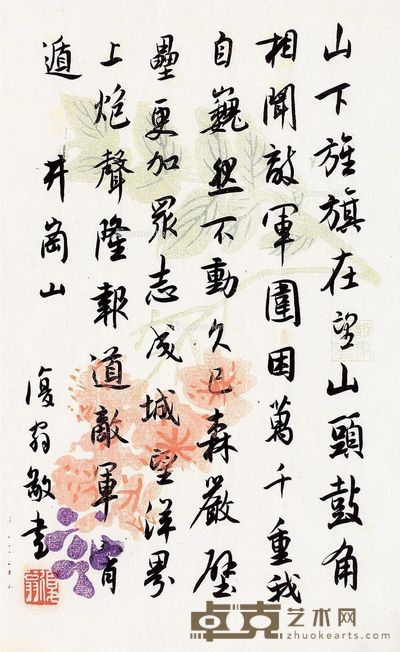 山下旌旗在望山頭鼓角
相聞敵軍圍困萬千重我
自巍然不動久已森嚴壁
壘更加眾志成城望洋界
上炮聲隆報道敵軍宵
遁 井崗山
復翁敬书
復翁
卓克艺术网
zhuokearts.com